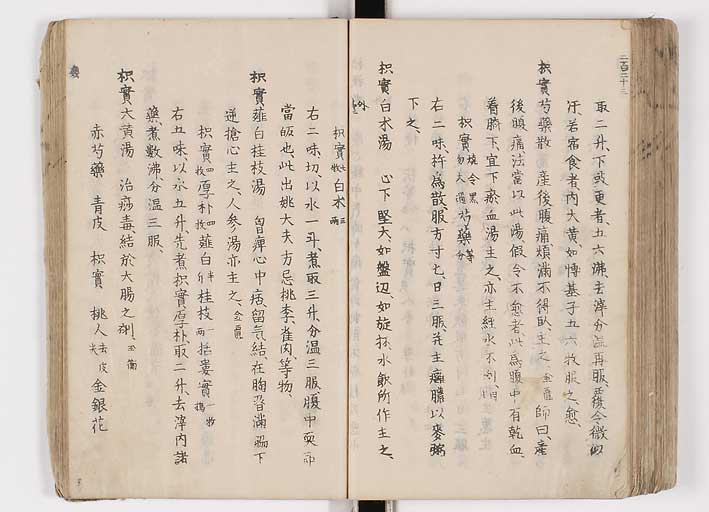 二百二十三
取二升、下豉更煮、五六沸、去滓分温再服、覆令微似
汗、若宿食者、内大黄、如博基子五六枚服之、愈、
枳實芍藥散 産後腹痛煩滿不得臥、主之、金匱 師曰、産
後腹痛法當以此湯、假令不愈者、此為腹中有乾血、
着臍下、宜下瘀血湯主之、亦主經水不利
枳實燒令黑勿太過芍藥等分
右二味、杵為散、服方寸匕、日三服、并主癰膿、以麥粥
下之、
枳實白朮湯 心下堅大如盤、辺如旋杯、水飲所作、主之、
枳實七枚白朮三兩
右二味、切以水一斗、煮取三升、分温三服、腹中耎即
當𣢾也、此出姚大夫方、忌桃李雀肉等物、
枳實薤白桂枝湯 胷痺心中痞、留氣結在胸、胷滿、脇下
逆搶心、主之、人参湯亦主之、金匱
枳實四枚厚朴四枚薤白半斤桂枝一兩括蔞實一枚搗
右五味、以水五升、先煮枳實厚朴、取二升、去滓、内諸
藥、煮數沸、分温三服、
枳實大黄湯 治痧毒結於大腸之剤、
赤芍藥 青皮 枳實 桃人去皮尖 金銀花